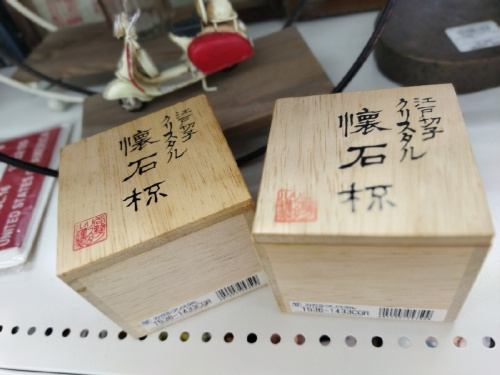 江戸切子
クリスタル
懐石杯
江戸切子
クリスタル
懐石杯
TS36-1433CGR
TS36-1433CGR
UNITED STATES